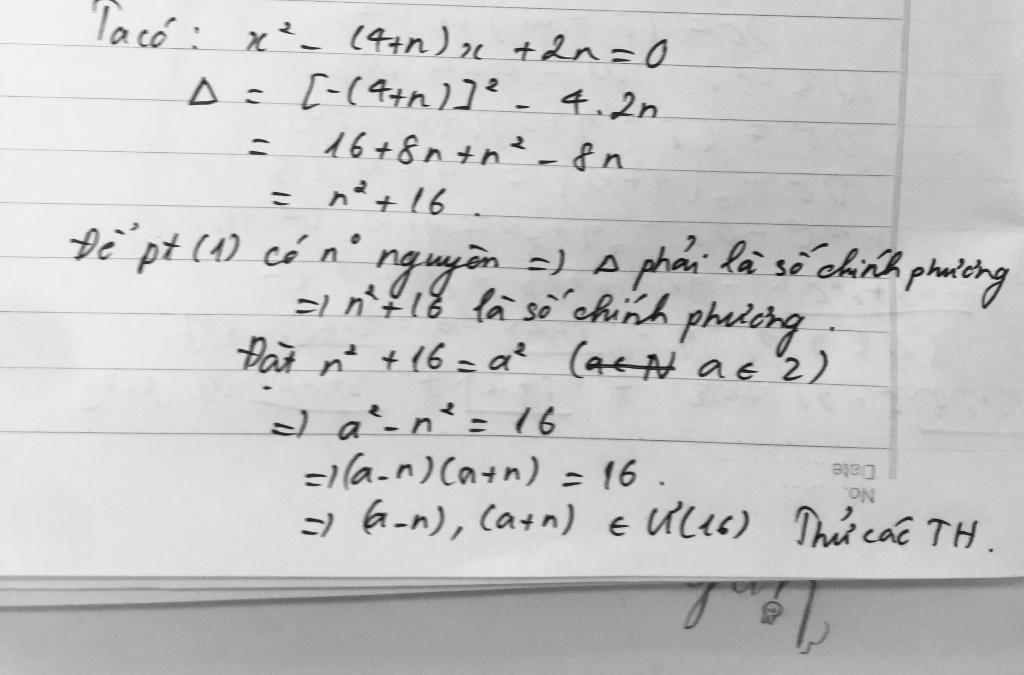 Ta có: x² - (4+n)x + 2n = 0
Δ = [-(4+n)]² - 4.2n
= 16+8n+n² - 8n
= n² + 16.
Để pt (1) có n° nguyên => Δ phải là số chính phương
=> n²+16 là số chính phương.
Đặt n² + 16 = a² (a∈N a ∈ Z)
=> a² - n² = 16
=> (a-n)(a+n) = 16.
Date
No.
=> (a-n), (a+n) ∈ Ư(16) Thử các TH.